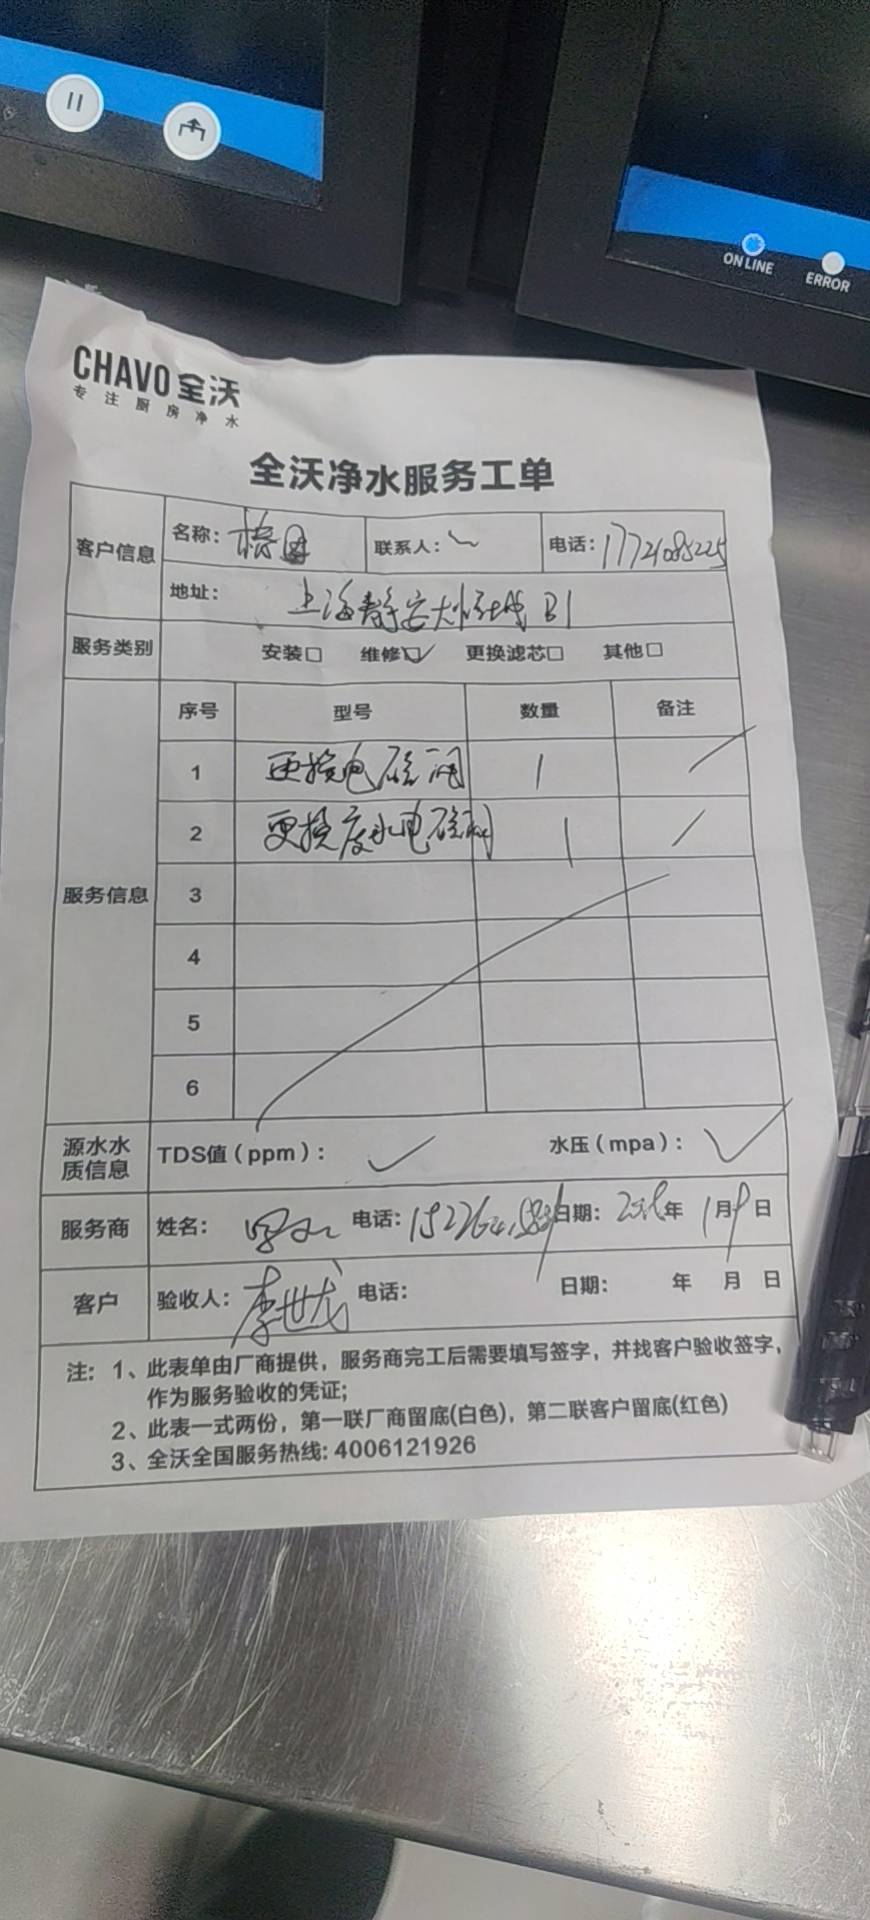 ON LINE
ERROR
CHAVO 全沃
专注厨房净水
全沃净水服务工单
客户信息 名称： 联系人： 电话：17721085225
地址：上海静安大 B1
服务类别 安装□ 维修☑ 更换滤芯□ 其他□
服务信息 序号 型号 数量 备注
1 更换电磁阀 1 /
2 更换废水电磁阀 1 /
3
4
5
6
源水水质信息 TDS值（ppm）：✓ 水压（mpa）：✓
服务商 姓名： 电话： 日期： 年 1月9日
客户 验收人：李世龙 电话： 日期： 年 月 日
注：1、此表单由厂商提供，服务商完工后需要填写签字，并找客户验收签字，
作为服务验收的凭证;
2、此表一式两份，第一联厂商留底(白色)，第二联客户留底(红色)
3、全沃全国服务热线: 4006121926